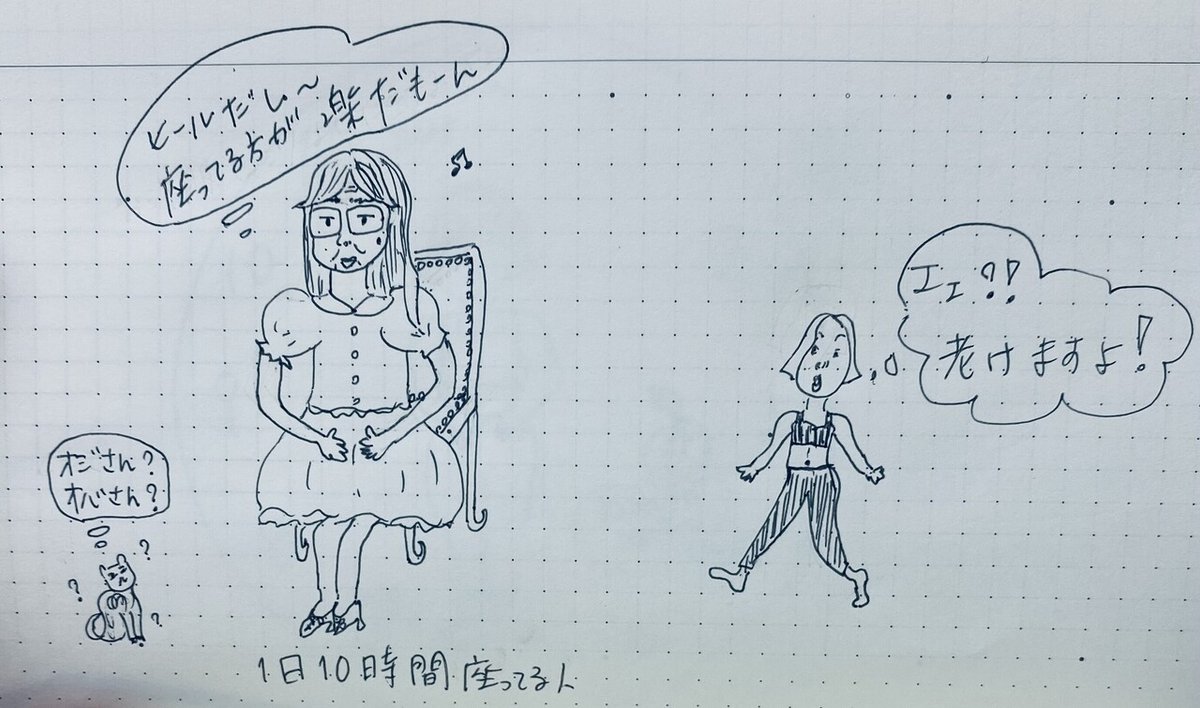 ヒールだし〜
座ってる方が楽だもーん
エェ?!
老けますよ!
オジさん?
オバさん?
?
?
?
?
1日10時間座ってる人